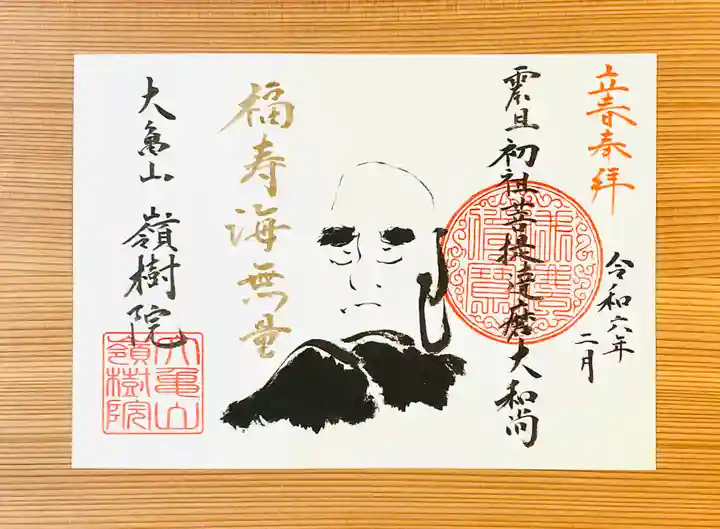 立春奉拝
令和六年
二月
震旦初祖菩提達磨大和尚
福寿海無量
大亀山 嶺樹院
大亀山
嶺樹院